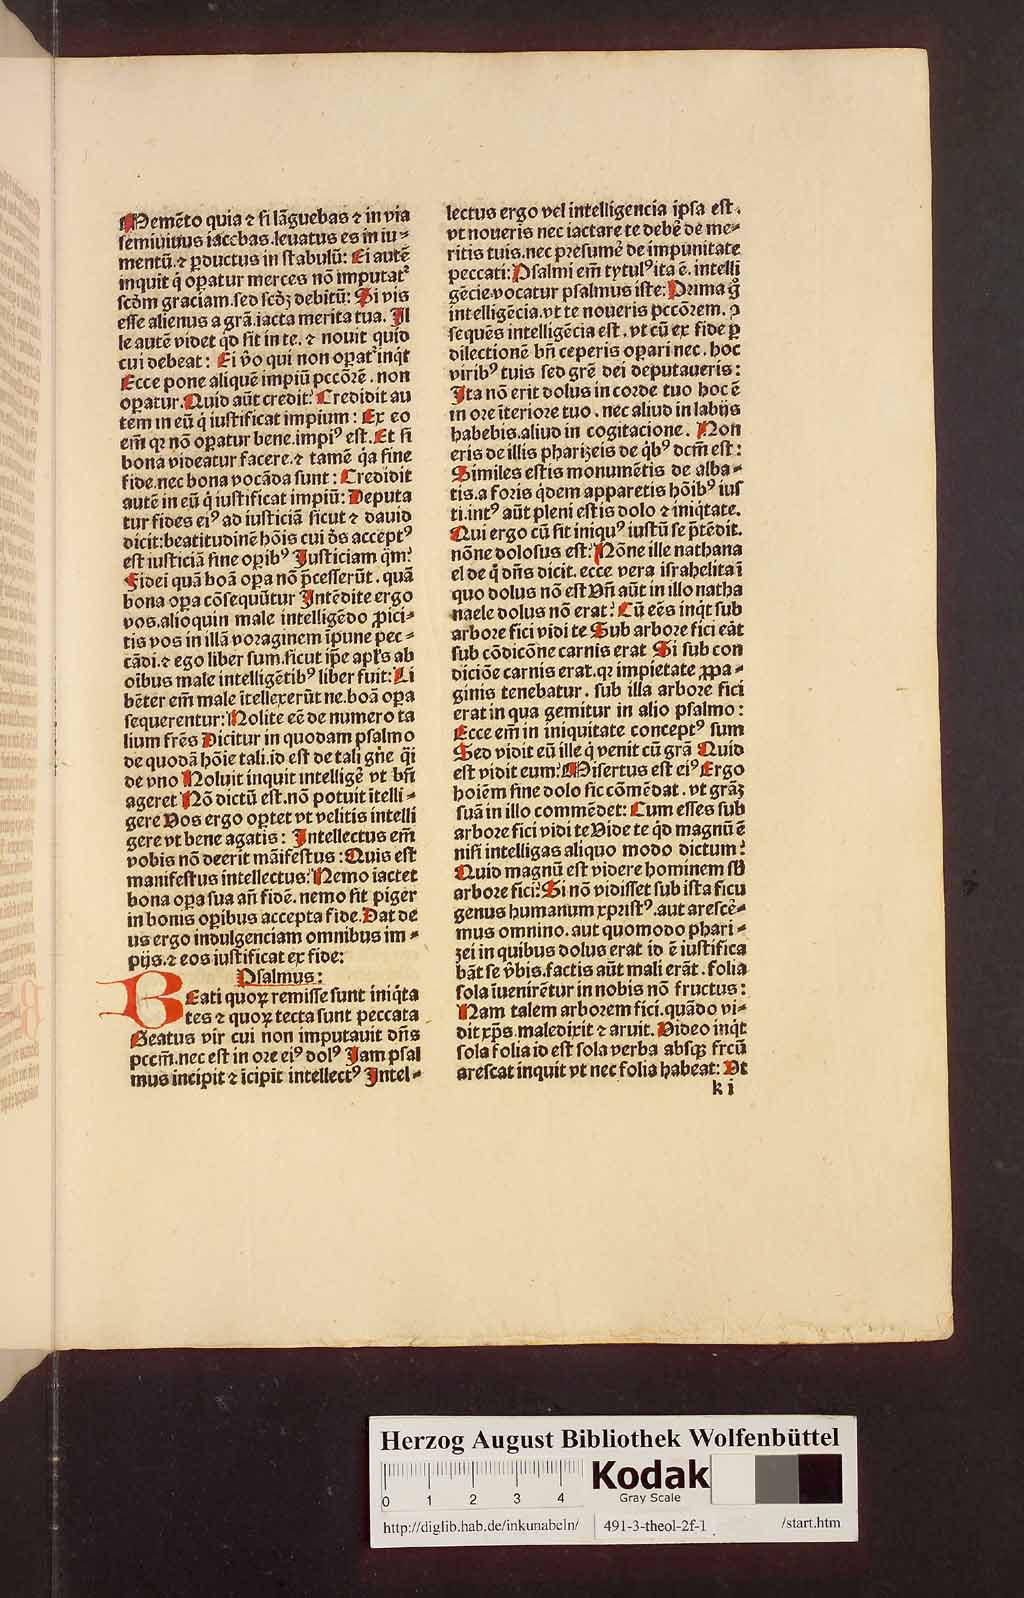 Memēto quia ⁊ si lāguebas ⁊ in via
semiuiuus iacebas.leuatus es in iu⸗
mentū.⁊ ꝑductus in stabulū: Ei autē
inquit q̇ oꝑatur merces nō imputatᷣ
scd̄m graciam.sed scd̄ꝫ debitū: Si vis
esse alienus a grā.iacta merita tua. Il
le autē videt qd̄ sit in te. ⁊ nouit quid
cui debeat: Ei v̄o qui non oꝑatᷣ inq̇t
Ecce pone aliquē impiū pccōrē.non
oꝑatur.Quid aūt credit: Credidit au
tem in eū q̇ iustificat impium: Ex eo
em̄ qꝛ nō oꝑatur bene.impiꝰ est.Et si
bona videatur facere.⁊ tamē q̇a sine
fide.nec bona vocāda sunt: Credidit
autē in eū q̇ iustificat impiū: Deputa
tur fides eiꝰ ad iusticiā sicut ⁊ dauid
dicit:beatitudinē hōis cui d̄s acceptꝰ
est iusticiā sine oꝑibꝰ Iusticiam q̄m:
Fidei quā boā oꝑa nō p̄cesserūt. quā
bona oꝑa cōsequūtur Intēdite ergo
vos.alioquin male intelligēdo ꝓici⸗
tis vos in illā voraginem īpune pec⸗
cādi.⁊ ego liber sum.sicut ip̄e apl̄s ab
oībus male intelligētibꝰ liber fuit:Li
bēter em̄ male ītellexerūt ne.boā oꝑa
sequerentur: Nolite eē de numero ta
lium frēs Dicitur in quodam psalmo
de quodā hōie tali.id est de tali gn̄e q̇si
de vno Noluit inquit intelligē vt bn̄
ageret Nō dictū est.nō potuit ītelli⸗
gere Vos ergo oꝑtet vt velitis intelli
gere vt bene agatis: Intellectus em̄
vobis nō deerit māifestus:Quis est
manifestus intellectus: Nemo iactet
bona oꝑa sua an̄ fidē. nemo sit piger
in bonis oꝑibus accepta fide.Dat de
us ergo indulgenciam omnibus im⸗
pijs.⁊ eos iustificat ex fide:
Psalmus:
BEati quoꝝ remisse sunt iniq̇ta
tes ⁊ quoꝝ tecta sunt peccata
Beatus vir cui non imputauit dn̄s
pccm̄.nec est in ore eiꝰ dolꝰ Iam psal
mus incipit ⁊ īcipit intellectꝰ Intel⸗
lectus ergo vel intelligencia ipsa est.
vt noueris nec iactare te debē de me⸗
ritis tuis.nec presumē de impunitate
peccati: Psalmi em̄ tytulꝰ ita ē. intelli
gēcie.vocatur psalmus iste: Prima g̊
intelligēcia.vt te noueris pccōrem. ꝯ
sequēs intelligēcia est. vt cū ex fide ꝑ
dilectionē bn̄ ceperis oꝑari nec. hoc
viribꝰ tuis sed grē dei deputaueris:
Ita nō erit dolus in corde tuo hoc ē
in ore īteriore tuo. nec aliud in labijs
habebis.aliud in cogitacione. Non
eris de illis pharizeis de q̇bꝰ dcm̄ est:
Similes estis monumētis de alba⸗
tis.a foris q̇dem apparetis hōibꝰ ius
ti.intꝰ aūt pleni estis dolo ⁊ iniq̇tate.
Qui ergo cū sit iniquꝰ iustū se p̄tēdit.
nōne dolosus est: Nōne ille nathana
el de q̇ dn̄s dicit. ecce vera israhelita ī
quo dolus nō est Vn̄ aūt in illo natha
naele dolus nō erat: Cū eēs inq̇t sub
arbore fici vidi te Sub arbore fici eāt
sub cōdicōne carnis erat Si sub con
dicióne carnis erat.qꝛ impietate ꝓpa⸗
ginis tenebatur. sub illa arbore fici
erat in qua gemitur in alio psalmo:
Ecce em̄ in iniquitate conceptꝰ sum
Sed vidit eū ille q̇ venit cū grā Quid
est vidit eum: Misertus est eiꝰ Ergo
hoiēm sine dolo sic cōmēdat. vt grāꝫ
suā in illo commēdet: Cum esses sub
arbore fici vidi te Vide te qd̄ magnū ē
nisi intelligas aliquo modo dictum:
Quid magnū est videre hominem sb̄
arbore fici: Si nō vidisset sub ista ficu
genus humanum xpristꝰ.aut arescē⸗
mus omnino.aut quomodo phari⸗
zei in quibus dolus erat id ē iustifica
bāt se v̄bis.factis aūt mali erāt.folia
sola īuenirētur in nobis nō fructus:
Nam talem arborem fici.quādo vi⸗
dit xp̄s.maledixit ⁊ aruit. Video inq̇t
sola folia id est sola verba absqꝫ frcū
arescat inquit vt nec folia habeat: Vt
k i
Herzog August Bibliothek Wolfenbüttel
0 1 2 3 4
Kodak
Gray Scale
http://diglib.hab.de/inkunabeln/ 491-3-theol-2f-1 /start.htm